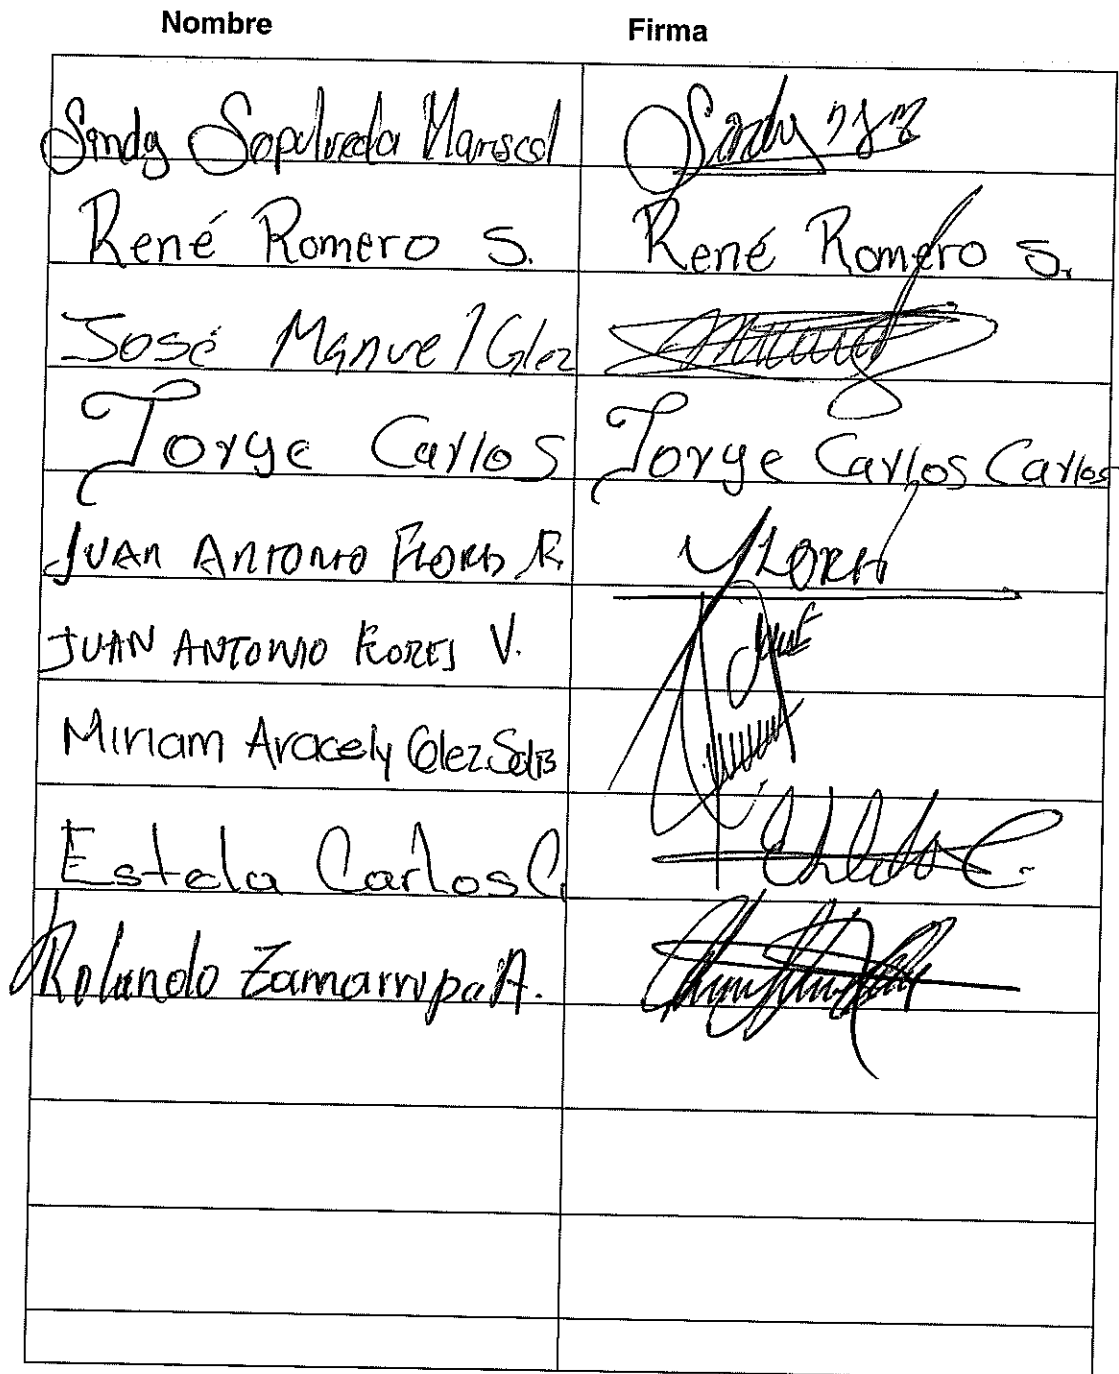 Nombre Firma
Sindy Sepulveda Mariscal Sindy
René Romero S. René Romero S.
José Manuel Glez
Jorge Carlos Jorge Carlos Carlos
JUAN ANTONIO FLORES R.
JUAN ANTONIO FLORES V.
Miriam Aracely Glez Solis
Estela Carlos C.
Rolando Zamarripa A.